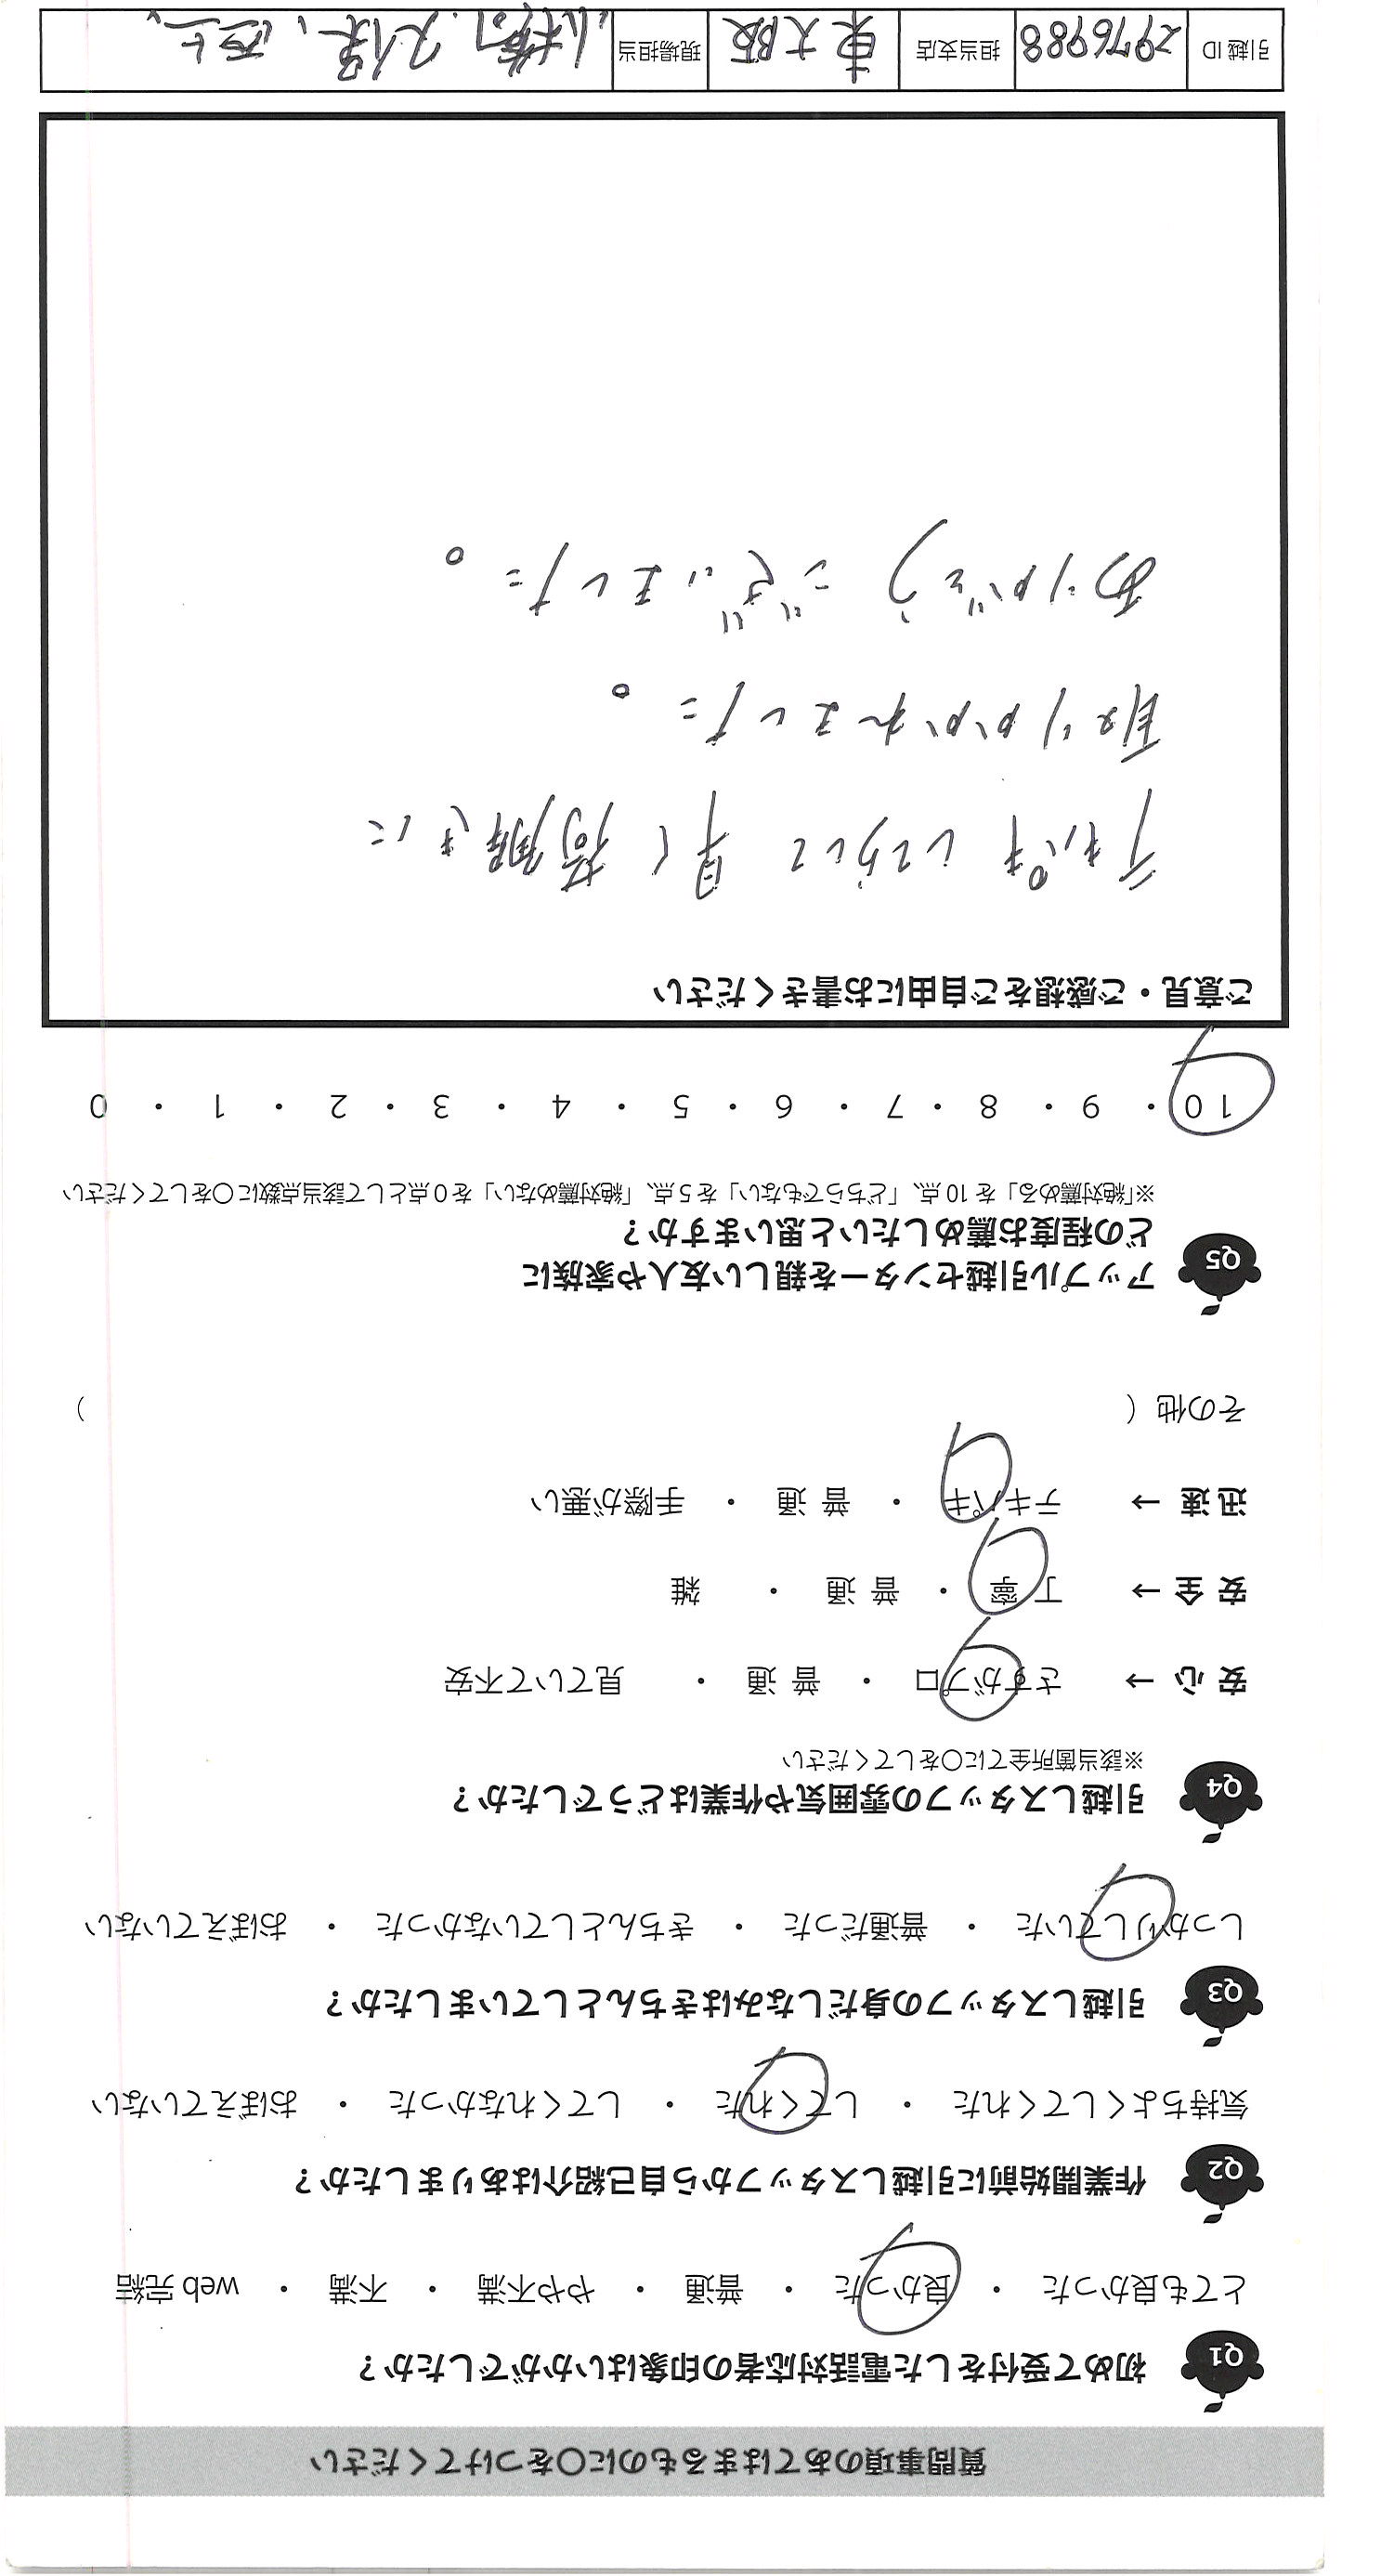 質問事項のあてはまるものに〇をつけてください
Q1 初めて受付をした電話対応者の印象はいかがでしたか?
とても良かった ・ 良かった ・ 普通 ・ やや不満 ・ 不満 ・ web 完結
Q2 作業開始前に引越しスタッフから自己紹介はありましたか?
気持ちよくしてくれた ・ してくれた ・ してくれなかった ・ おぼえていない
Q3 引越しスタッフの身だしなみはきちんとしていましたか?
しっかりしていた ・ 普通だった ・ きちんとしていなかった ・ おぼえていない
Q4 引越しスタッフの雰囲気や作業はどうでしたか?
※該当箇所全てに〇をしてください
安 心 → さすがプロ ・ 普 通 ・ 見ていて不安
安 全 → 丁 寧 ・ 普 通 ・ 雑
迅 速 → テキパキ ・ 普 通 ・ 手際が悪い
その他 ( )
Q5 アップル引越センターを親しい友人や家族に
どの程度お薦めしたいと思いますか?
※「絶対薦める」を 10 点、「どちらでもない」を 5 点、「絶対薦めない」を 0 点として該当点数に〇をしてください
10 ・ 9 ・ 8 ・ 7 ・ 6 ・ 5 ・ 4 ・ 3 ・ 2 ・ 1 ・ 0
ご意見・ご感想をご自由にお書きください
テキパキ してらして 早く 荷解きに
取りかかれました。
ありがとう ございました。
引越 ID 2976988 担当支店 東大阪 現場担当 大保、